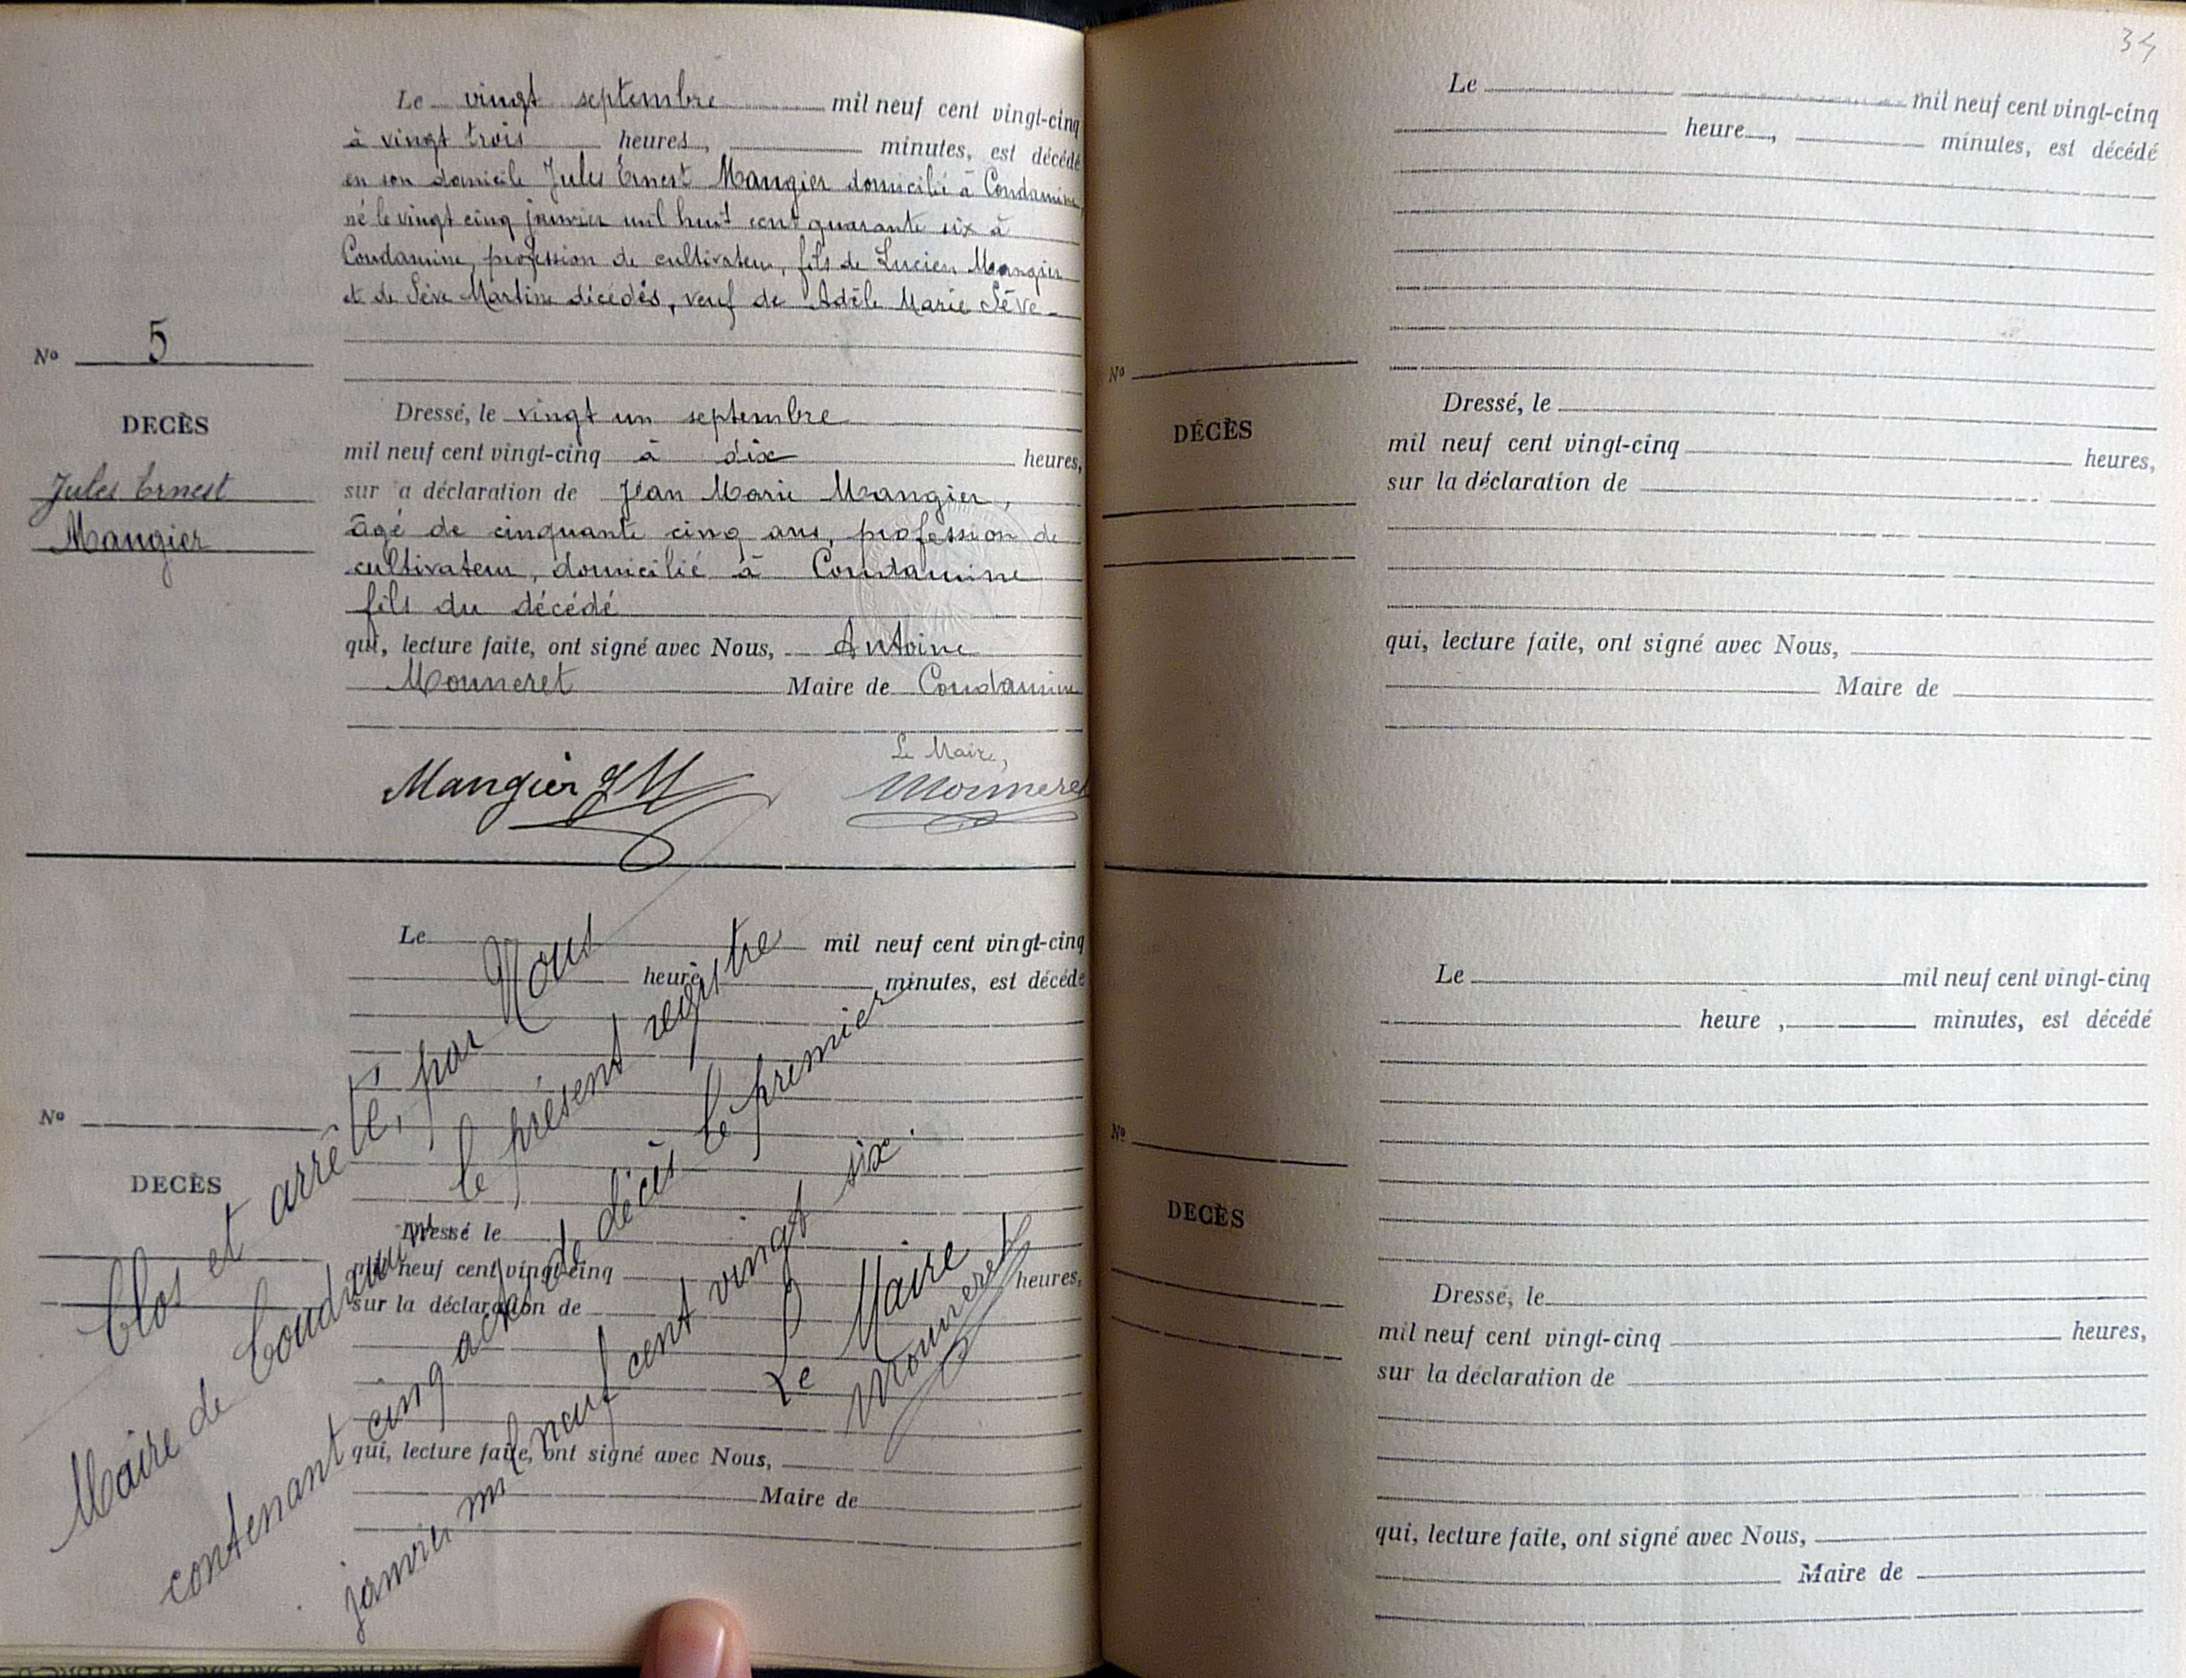 Le vingt septembre mil neuf cent vingt-cinq
à vingt trois heures, minutes, est décédé
en son domicile Jules Ernest Mangier domicilié à Condamine,
né le vingt cinq janvier mil huit cent quarante six à
Condamine, profession de cultivateur, fils de Lucien Mangier
et de Sève Martine décédés, veuf de Adèle Marie Sève
No 5
DECÈS
Jules Ernest
Mangier
Dressé, le vingt un septembre
mil neuf cent vingt-cinq à dix heures,
sur a déclaration de Jean Marie Mangier,
âgé de cinquante cinq ans, profession de
cultivateur, domicilié à Condamine
fils du décédé
qui, lecture faite, ont signé avec Nous, Antoine
Mouneret Maire de Condamine
Le Maire,
Mangier JM
Mouneret
Le mil neuf cent vingt-cinq
heure minutes, est décédé
No
DECÈS
Dressé le
mil neuf cent vingt-cinq heures,
sur la déclaration de
qui, lecture faite, ont signé avec Nous,
Maire de
Clos et arrêté, par Nous
Maire de Condamine le présent registre
contenant cinq actes de décès le premier
janvier mil neuf cent vingt six.
Le Maire
Mouneret
34
Le mil neuf cent vingt-cinq
heure , minutes, est décédé
No
DÉCÈS
Dressé, le
mil neuf cent vingt-cinq heures,
sur la déclaration de
qui, lecture faite, ont signé avec Nous,
Maire de
Le mil neuf cent vingt-cinq
heure , minutes, est décédé
No
DECÈS
Dressé, le
mil neuf cent vingt-cinq heures,
sur la déclaration de
qui, lecture faite, ont signé avec Nous,
Maire de